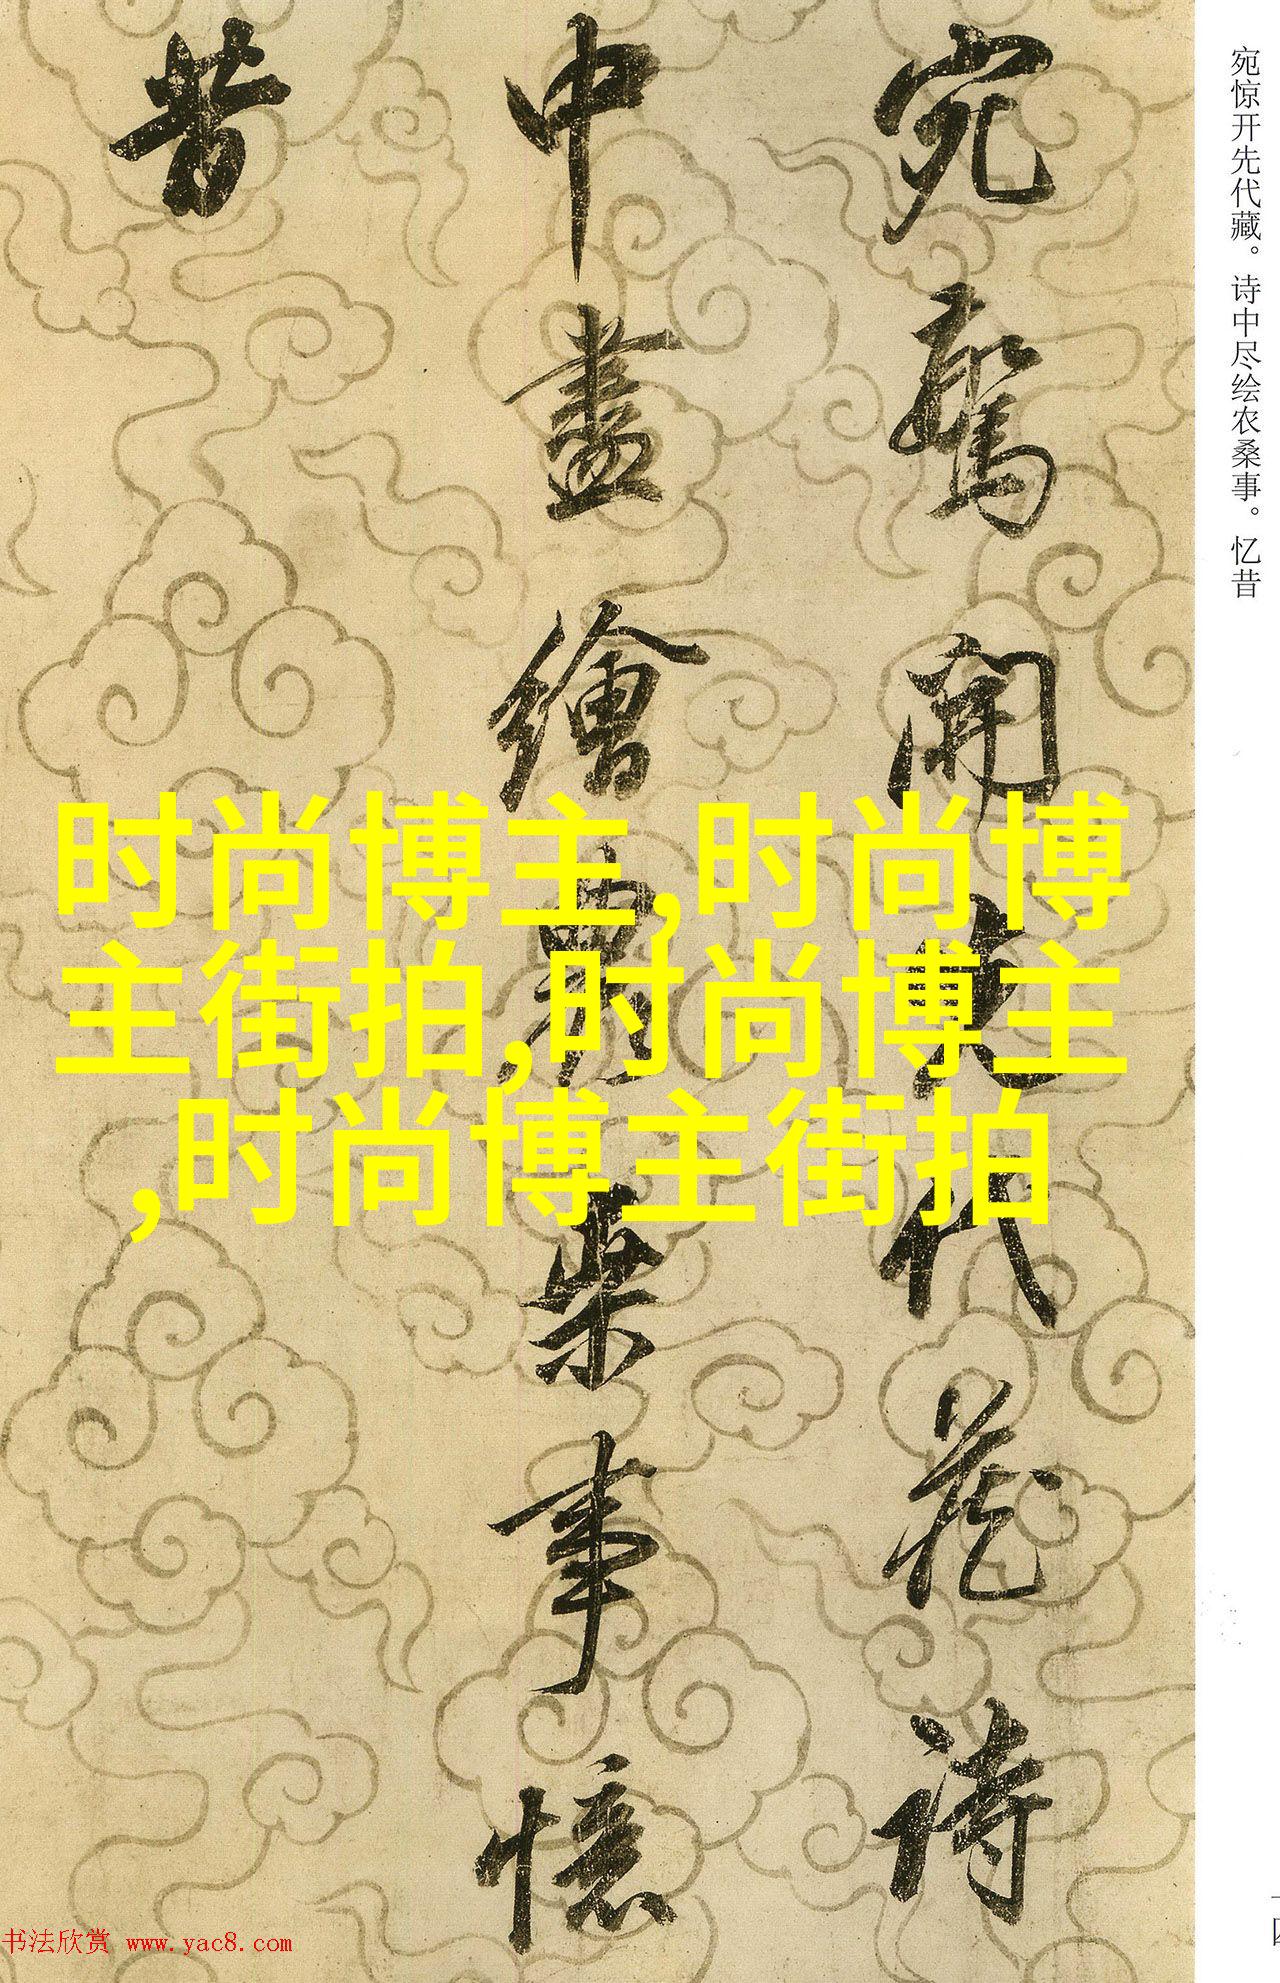 宛惊开先代藏。诗中尽绘农桑事。忆昔
宛驚開先代藏詩
中盡繪農桑事憶
昔
时尚博主,时尚博
主街拍,时尚博主
,时尚博主街拍
书法欣赏 www.yac8.com